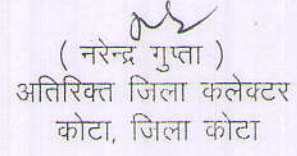 ( नरेन्द्र गुप्ता )
अतिरिक्त जिला कलेक्टर
कोटा, जिला कोटा